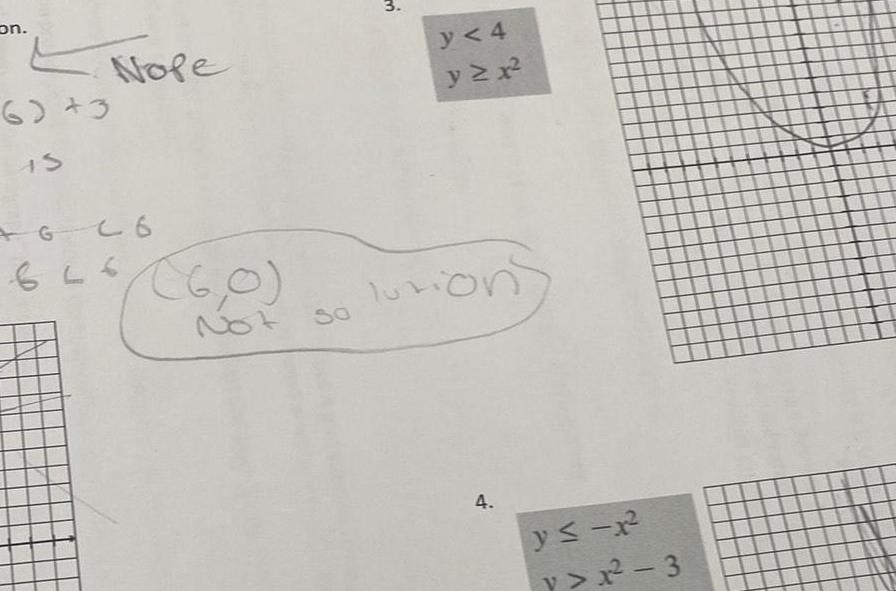 on.
Nope
6) + 3
15
+ 6 < 6
6 < 6
(6,0)
Not solution
3.
y < 4
y ≥ x²
4.
y ≤ −x²
y > x² − 3